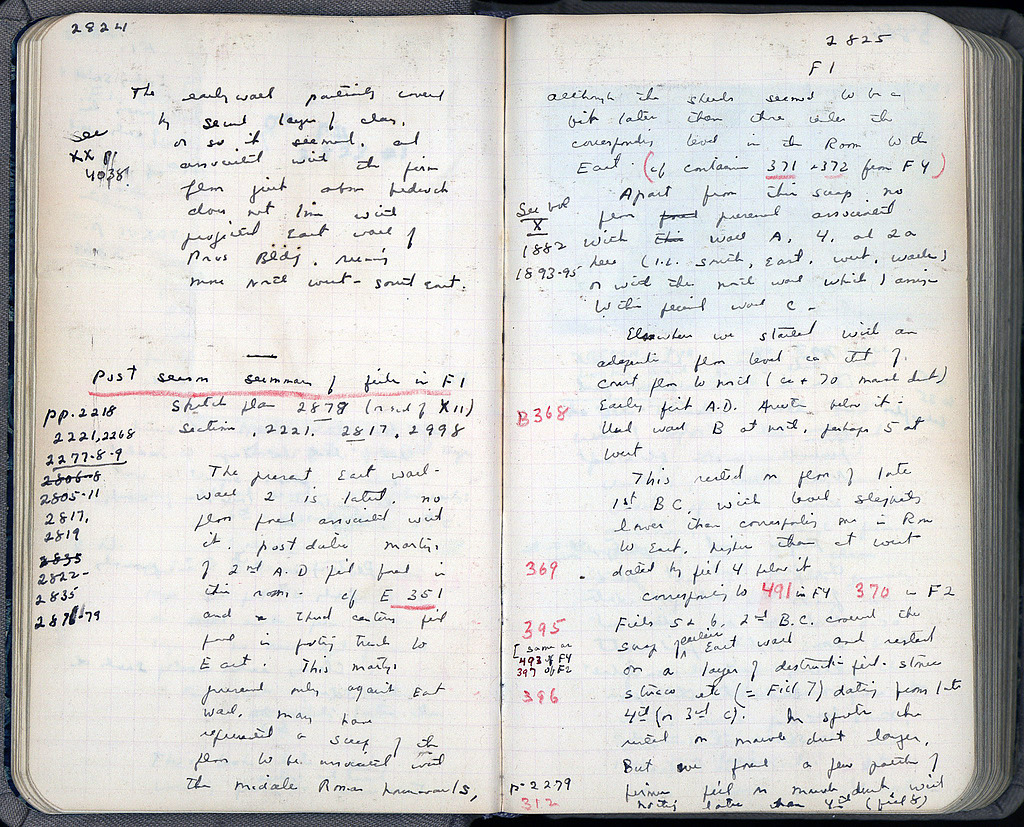 2824
The early wall partially covered
by second layer of clay,
or so it seemed, and
See
XX pp
4038!
associated with the firm
floor just above bedrock
does not line with
projected East wall of
Bldg. running
more north west - south east.
Post season summary of fills in F1
Sketch plan 2878 (in end of XII)
Sections, 2221, 2817, 2998
pp. 2218
2221, 2268
2277-8-9
2806-8
2805-11
2817,
2819
2835
2822-
2835
2878-79
The present East wall -
wall 2 is later. no
floor found associated with
it. postdates mortar
of 2nd A.D fill found in
this room. cf E 351
and 3rd century fill
found in trench to
East. This mortar
preserved only against East
wall, may have
represented a scrap of the
floor to be associated with
the middle Roman
2825
F1
although the sherds seemed to be a
bit later than those under the
corresponding level in the Room to the
East. (cf container 371 + 372 from F4)
Apart from this scrap no
floor preserved associated
with wall A, 4, and 2a
here (i.e. south, East, west, walls)
or with the north wall which I assign
with period wall C -
See vol
X
1882
1893-95
Elsewhere we started with an
adequate floor level ca that of
court floor to north (ca + 70 marble dust)
Early first A.D. below it -
Used wall B at north, perhaps 5 at
west
B368
This rested on floor of late
1st B.C. with level slightly
lower than corresponding one in Room
to East, higher than at west
dated by fill 4 below it
369
corresponding to 491 in F4 370 in F2
Fills 5 & 6, 2nd B.C. covered the
scrap earlier East wall and rested
on a layer of destruction fill - stones
stucco etc (= Fill 7) dating from late
4th (or 3rd c). In spots the
rested on marble dust layer.
395
[same as
493 of F4
397 of F2
396
But we found a few patches of
fill on marble dust with
nothing later than 4th (fill 8)
p-2279
312